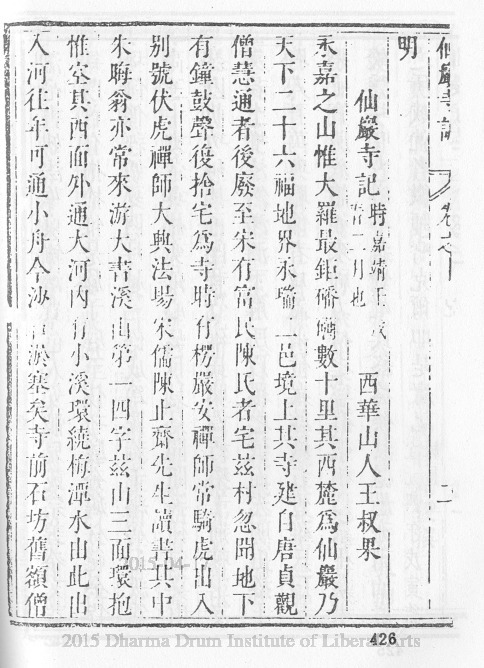 仙巖寺記 卷之 二
明
仙巖寺記 時嘉靖壬 二月也 西華山人王叔果
永嘉之山惟大羅最鉅磻礴數十里其西麓為仙巖乃
天下二十六福地界永瑞二邑境上其寺建自唐貞觀
僧慧通者後廢至宋有富民陳氏者宅茲村忽聞地下
有鐘鼓聲復捨宅為寺時有楞嚴安禪師常騎虎出入
別號伏虎禪師大興法場宋儒陳止齋先生讀書其中
朱晦翁亦常來游大書溪山第一四字茲山三面環抱
惟室其西面外通大河內有小溪環繞梅潭水由此出
入河往年可通小舟今 淤塞矣寺前石坊舊額僧
2015 Dharma Drum Institute of Liberal Arts
426